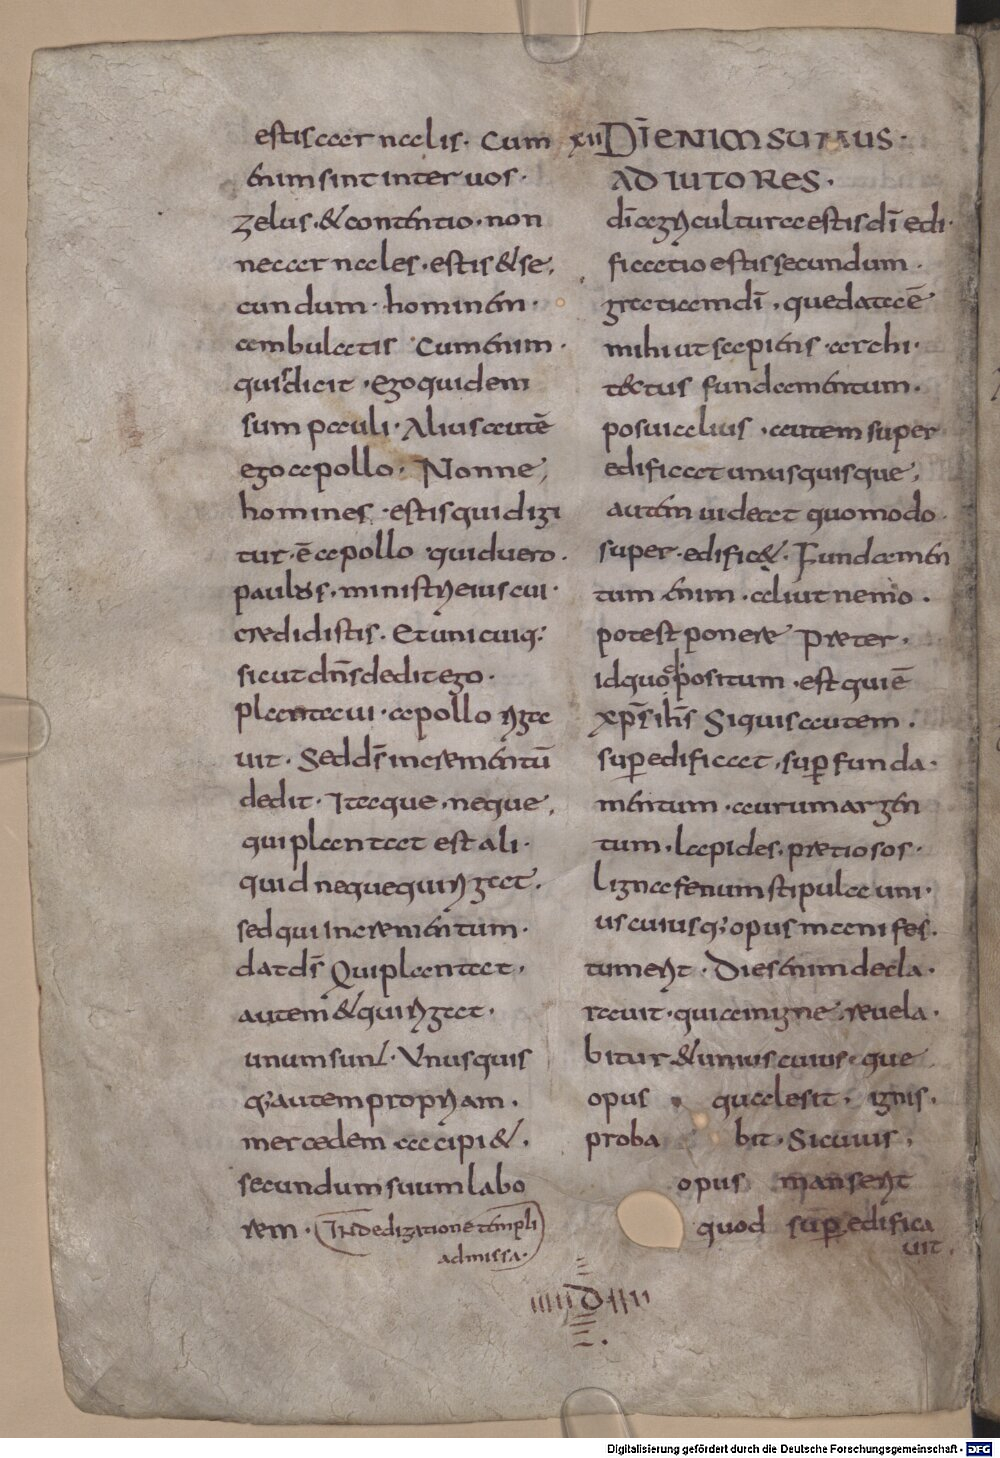 estis carnalis. Cum
enim sint inter uos.
zelus. & contentio. non
ne carnales. estis & se,
cundum. hominem.
ambulatis Cum enim.
quis dicit. ego quidem
sum pauli. Alius autē
ego apollo. Nonne,
homines. estis quid igi
tur. ē apollo quid uero.
paulus. minister eius cui.
credidistis. Et unicuiq;
sicut dn̄s dedit ego.
plantaui. apollo riga
uit. Sed ds̄ incrementū
dedit. Itaque. neque,
qui plantat est ali.
quid neque qui rigat.
sed qui incrementum.
dat ds̄ Qui plantat,
autem & qui rigat.
unum sunt. Unus quis
q; autem propriam.
mercedem accipi&.
secundum suum labo
rem. In dedigatione templi
admissa.
xii Dī ENIM SUMUS.
ADIUTORES.
dī agriculturae estis dī edi.
ficatio estis secundum.
gratiam dī. que data ē
mihi ut sapiens. archi.
t&tus fundamentum.
posui alius. autem super
edificat unusquisque,
autem uideat quomodo.
super. edific&. Fundamen
tum enim. aliut nemo.
potest ponere preter.
id quod positum. est qui ē
xp̄s ih̄s Siquis autem.
sup edificat, sup funda.
mentum. aurum argen
tum. lapides. pretiosos.
ligna fenum stipula uni.
us cuiusq; opus manifes.
tum erit. Dies enim decla.
rauit. quia in igne. reuela.
bitur & unius cuius que
opus quale sit. ignis.
proba bit. Si cuius,
opus manserit
quod sup edifica
uit.
D
Digitalisierung gefördert durch die Deutsche Forschungsgemeinschaft - DFG